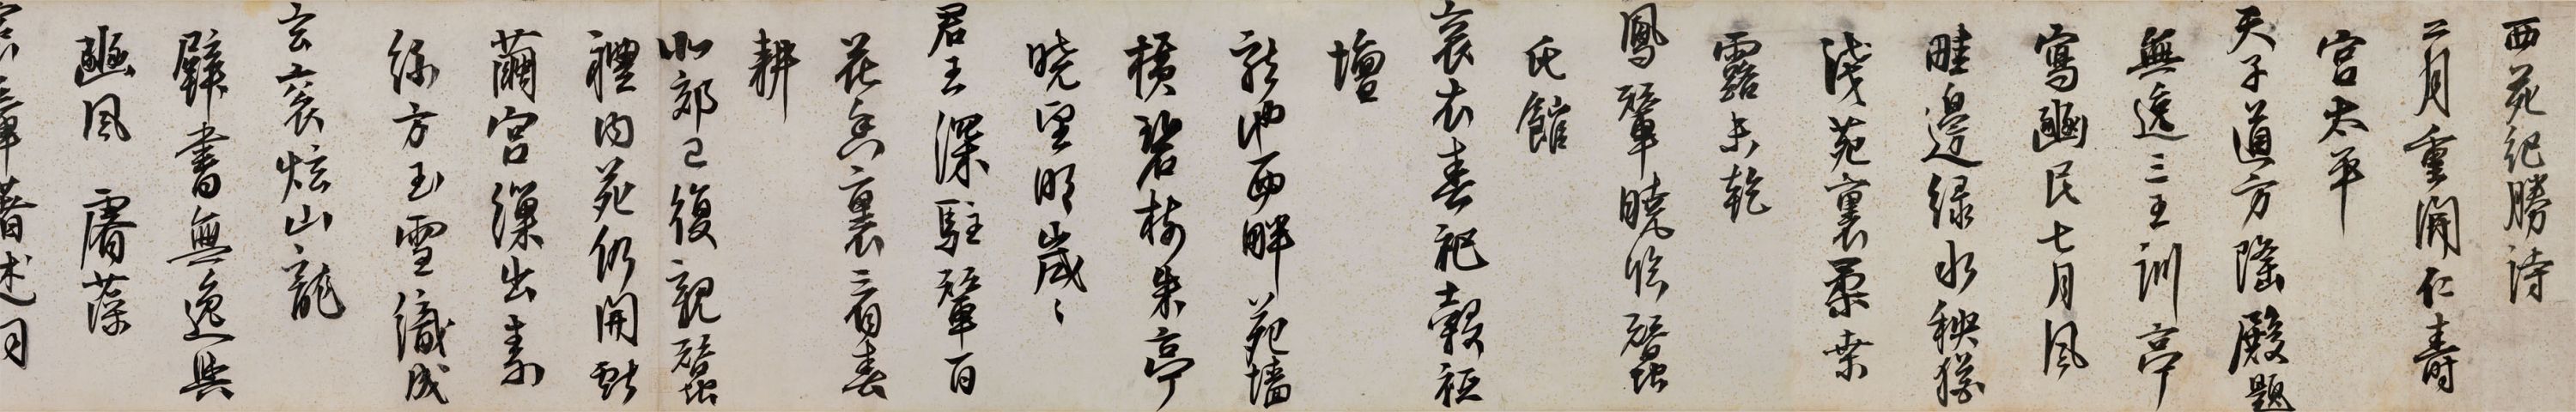 西苑紀勝詩
二月重開仁壽
宮太平
天子道方隆殿題
無逸三王訓亭
寫豳民七月風
畦邊綠水秧猶
淺苑裏柔桑
露未乾
鳳輦曉臨蠶
氏館
袞衣春祀穀祇
壇
龍池西畔苑墻
橫碧樹朱亭
曉望明歲〻
君王深駐輦百
花香裏看春
耕
北郊已復親蠶
禮內苑仍開獻
繭宮繅出素
絲方玉雪織成
玄袞炫山龍
殿書無逸與
豳風 睿藻
宸章昔述同